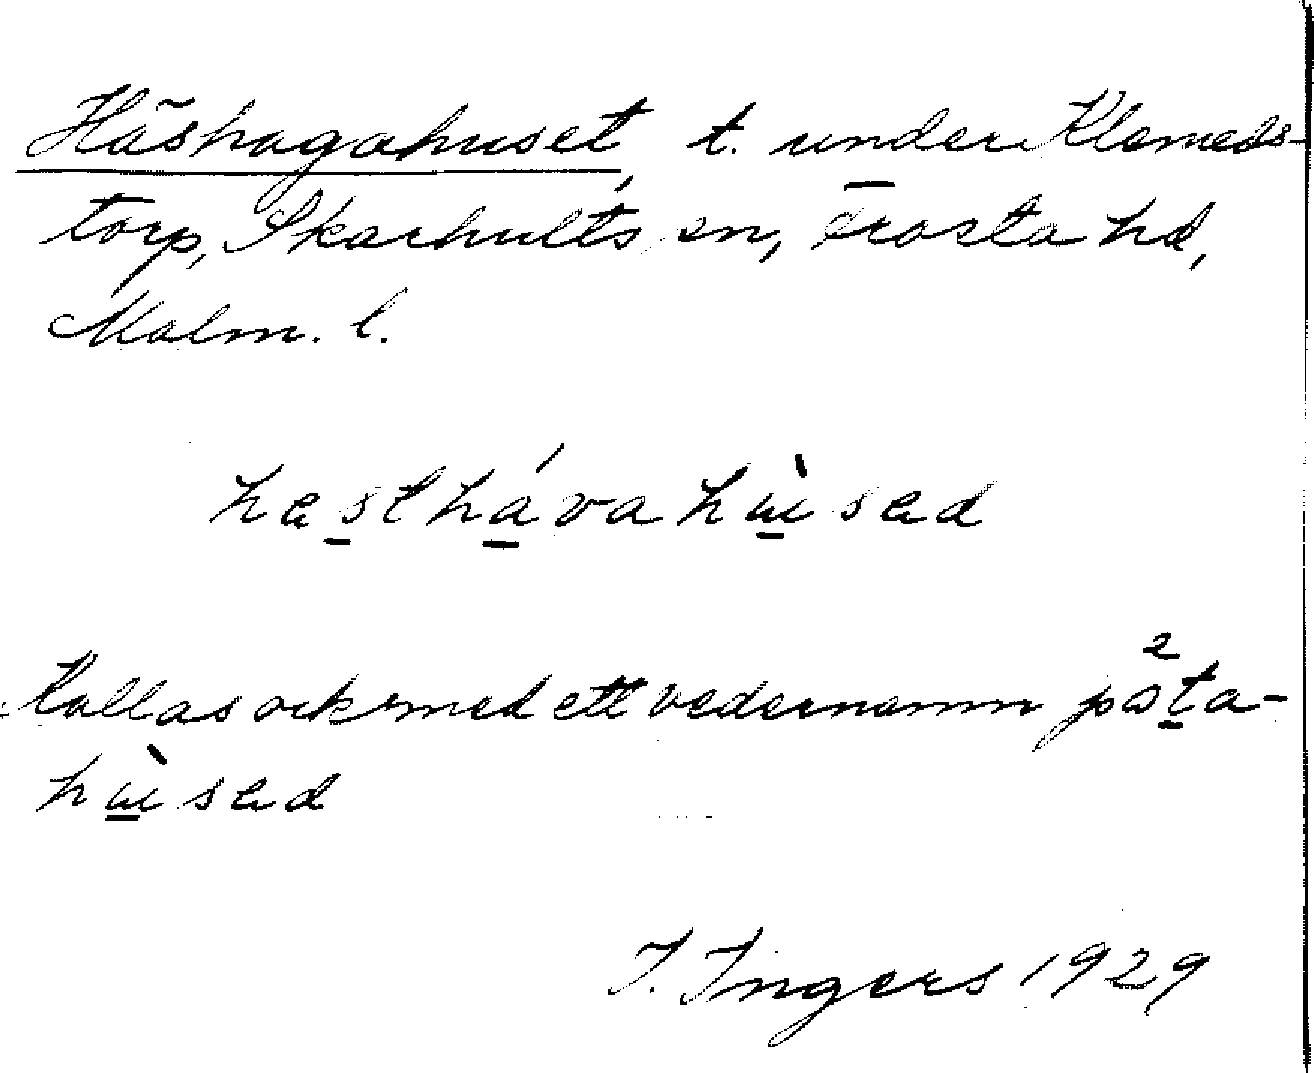 Häshagahuset, t. under Klemeds-
torp, Skarhults sn, Frosta hd,
Malm. l.
hesthávahùsed
Kallas ock med ett vedernamn påta-
hùsed
I. Ingers 1929